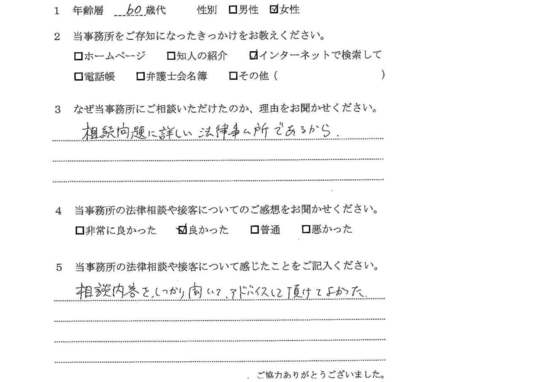 1 年齢層 60 歳代 性別 □男性 ☑女性
2 当事務所をご存知になったきっかけをお教えください。
□ホームページ □知人の紹介 ☑インターネットで検索して
□電話帳 □弁護士会名簿 □その他（ ）
3 なぜ当事務所にご相談いただけたのか、理由をお聞かせください。
相続問題に詳しい法律事ム所であるから.
4 当事務所の法律相談や接客についてのご感想をお聞かせください。
□非常に良かった ☑良かった □普通 □悪かった
5 当事務所の法律相談や接客について感じたことをご記入ください。
相談内容を、しっかり聞いて、アドバイスして頂けてよかった.
ご協力ありがとうございました。